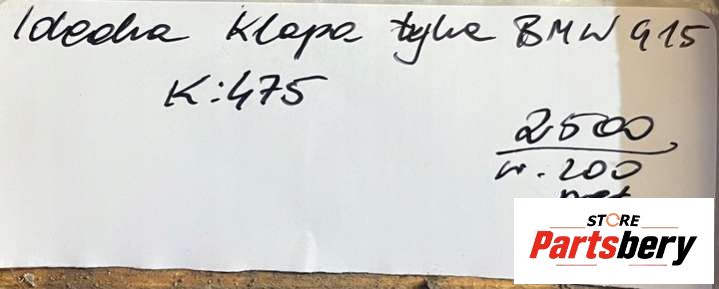 Idealna klapa tylna BMW G15
K:475
2500
w. 200
STORE
Partsbery